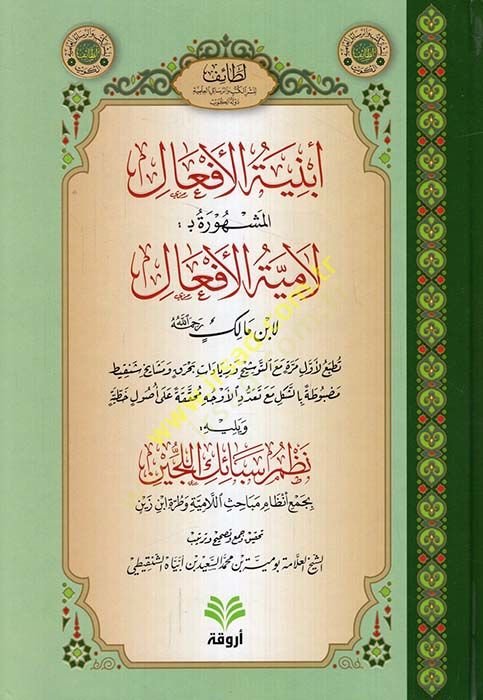 لطائف
لنشر الكتب والرسائل العلمية
دولة الكويت
أبنية الأفعال
المشهورة بـ:
لامية الأفعال
لابن مالك رحمه الله
تطبع لأول مرة مع التوشيح وزيادات بحرق ومشايخ شنقيط
مضبوطة بالشكل مع تعدد الأوجه محققة على أصول خطية
ويليه:
نظم سبائك اللجين
بجمع أنظام مباحث اللامية وطرة ابن زين
تحقيق وجمع وتصحيح وترتيب
الشيخ العلامة بومية بن محمد السعيد بن أبياه الشنقيطي
أروقة